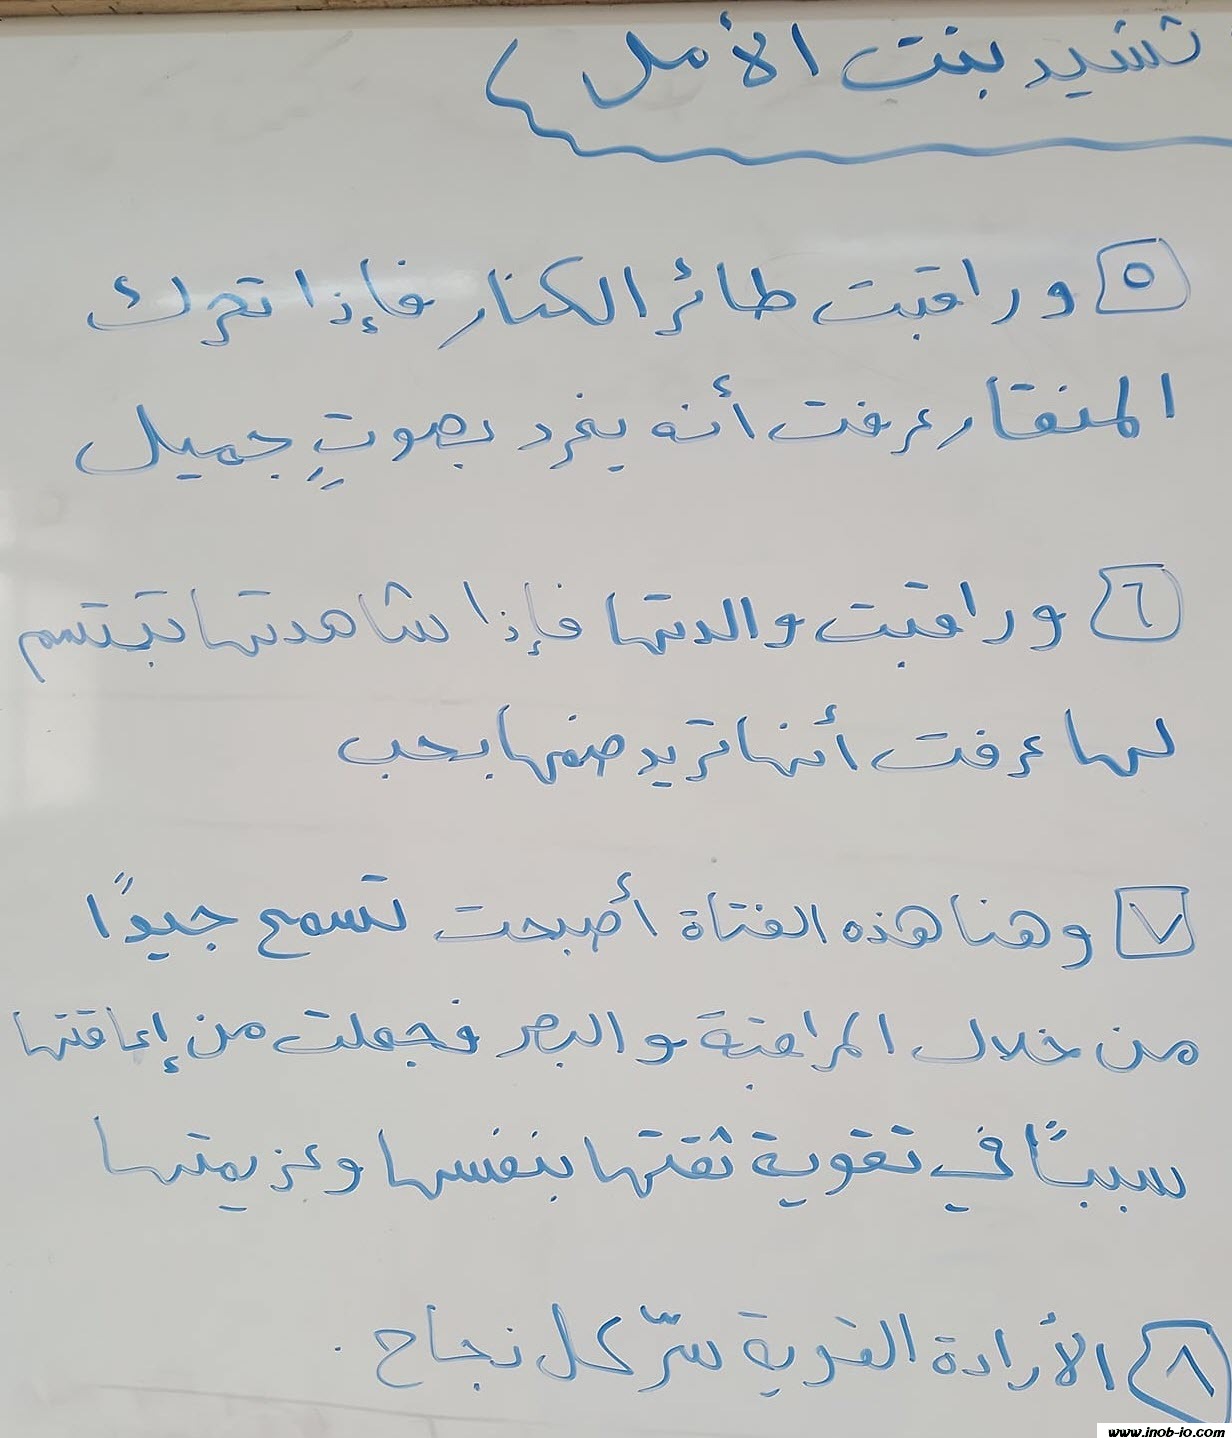 نشيد بنت الأمل
٥ وراقبت طائر الكنار فإذا تحرك
المنقار عرفت أنه يغرد بصوتٍ جميل
٦ وراقبت والدتها فإذا شاهدتها تبتسم
لها عرفت أنها تريد ضمها بحب
٧ وهنا هذه الفتاة أصبحت تسمع جيدًا
من خلال المراقبة والبصر فجعلت من إعاقتها
سببًا في تقوية ثقتها بنفسها وعزيمتها
٨ الأرادة القوية سرّ كل نجاح .
www.inob-io.com